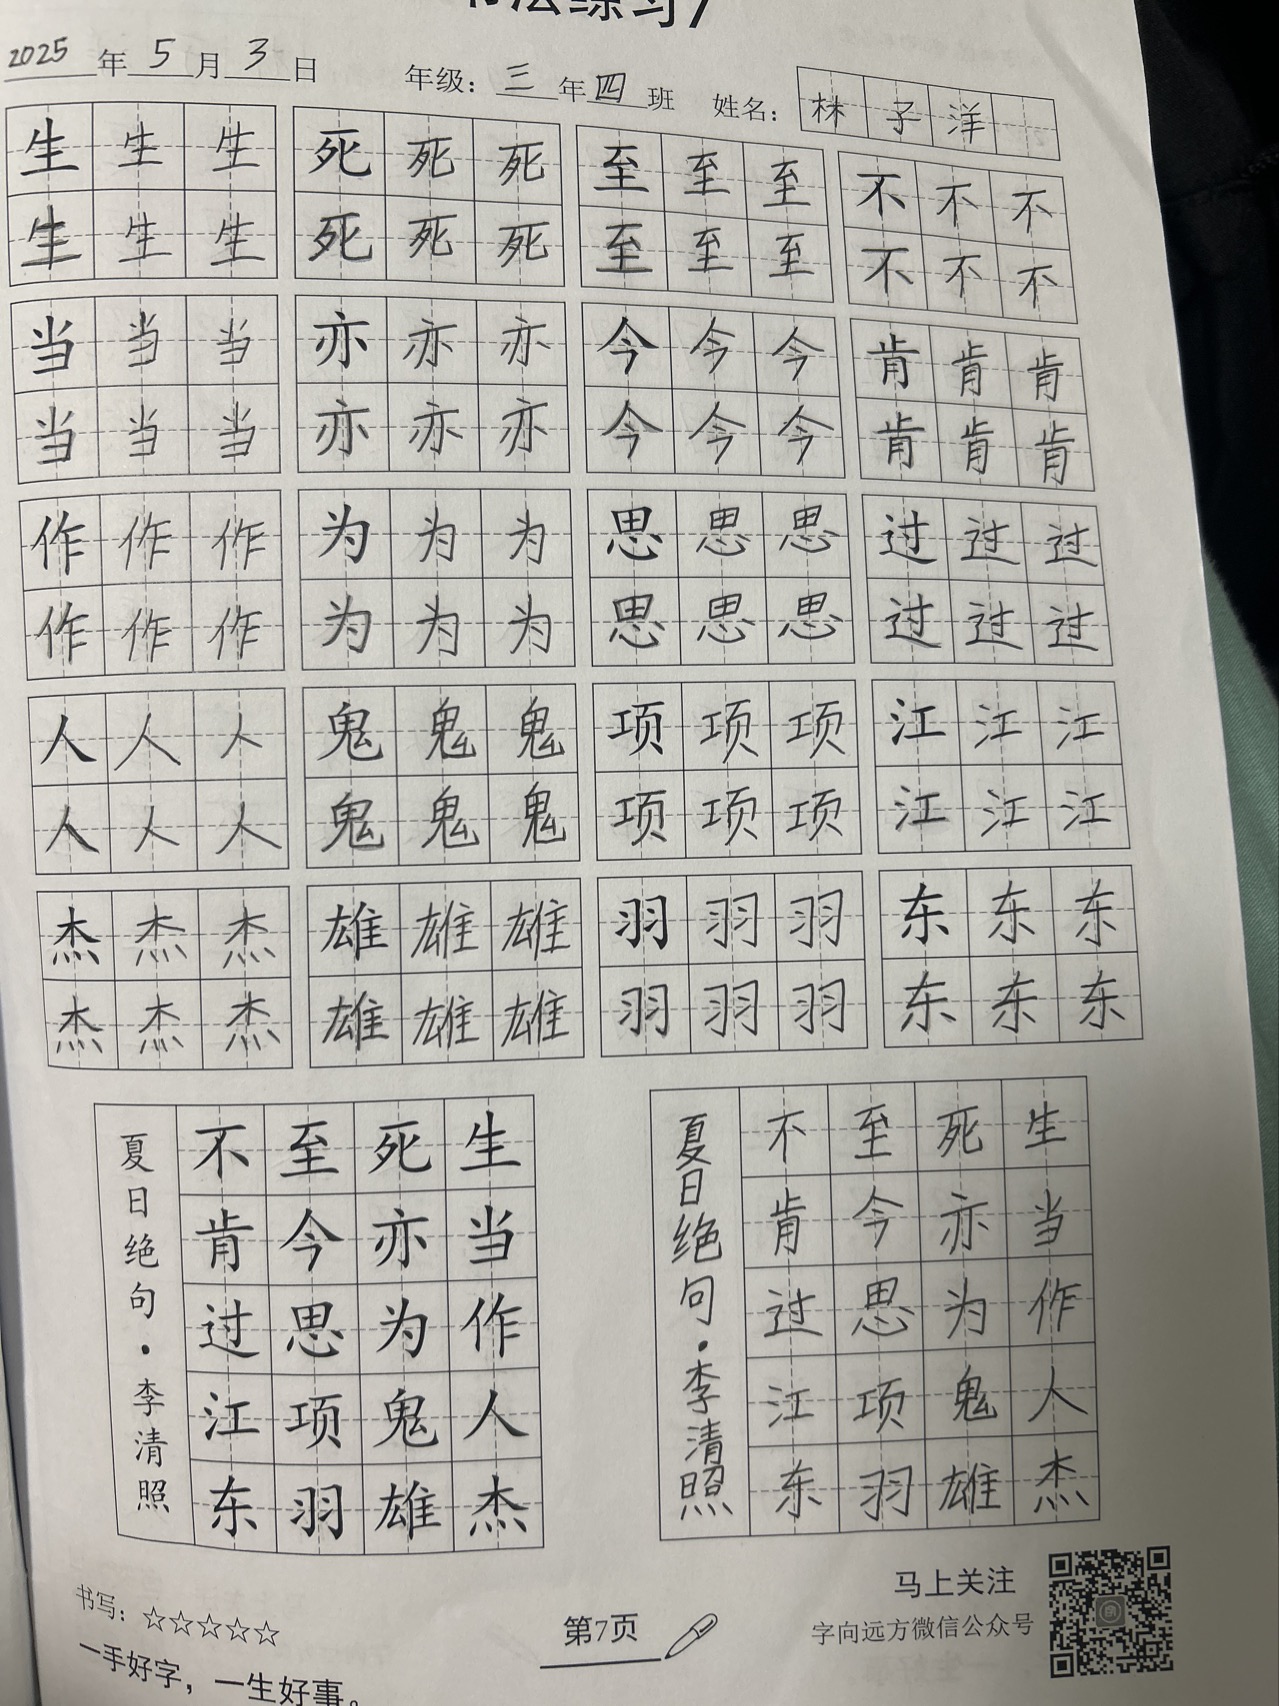 书法练习7
2025年5月3日 年级：三年四班 姓名：林子洋
生生生 死死死 至至至 不不不
生生生 死死死 至至至 不不不
当当当 亦亦亦 今今今 肯肯肯
当当当 亦亦亦 今今今 肯肯肯
作作作 为为为 思思思 过过过
作作作 为为为 思思思 过过过
人人人 鬼鬼鬼 项项项 江江江
人人人 鬼鬼鬼 项项项 江江江
杰杰杰 雄雄雄 羽羽羽 东东东
杰杰杰 雄雄雄 羽羽羽 东东东
生当作人杰
死亦为鬼雄
至今思项羽
不肯过江东
夏日绝句·李清照
生当作人杰
死亦为鬼雄
至今思项羽
不肯过江东
夏日绝句·李清照
书写：☆☆☆☆☆
一手好字，一生好事。
第7页
马上关注
字向远方微信公众号